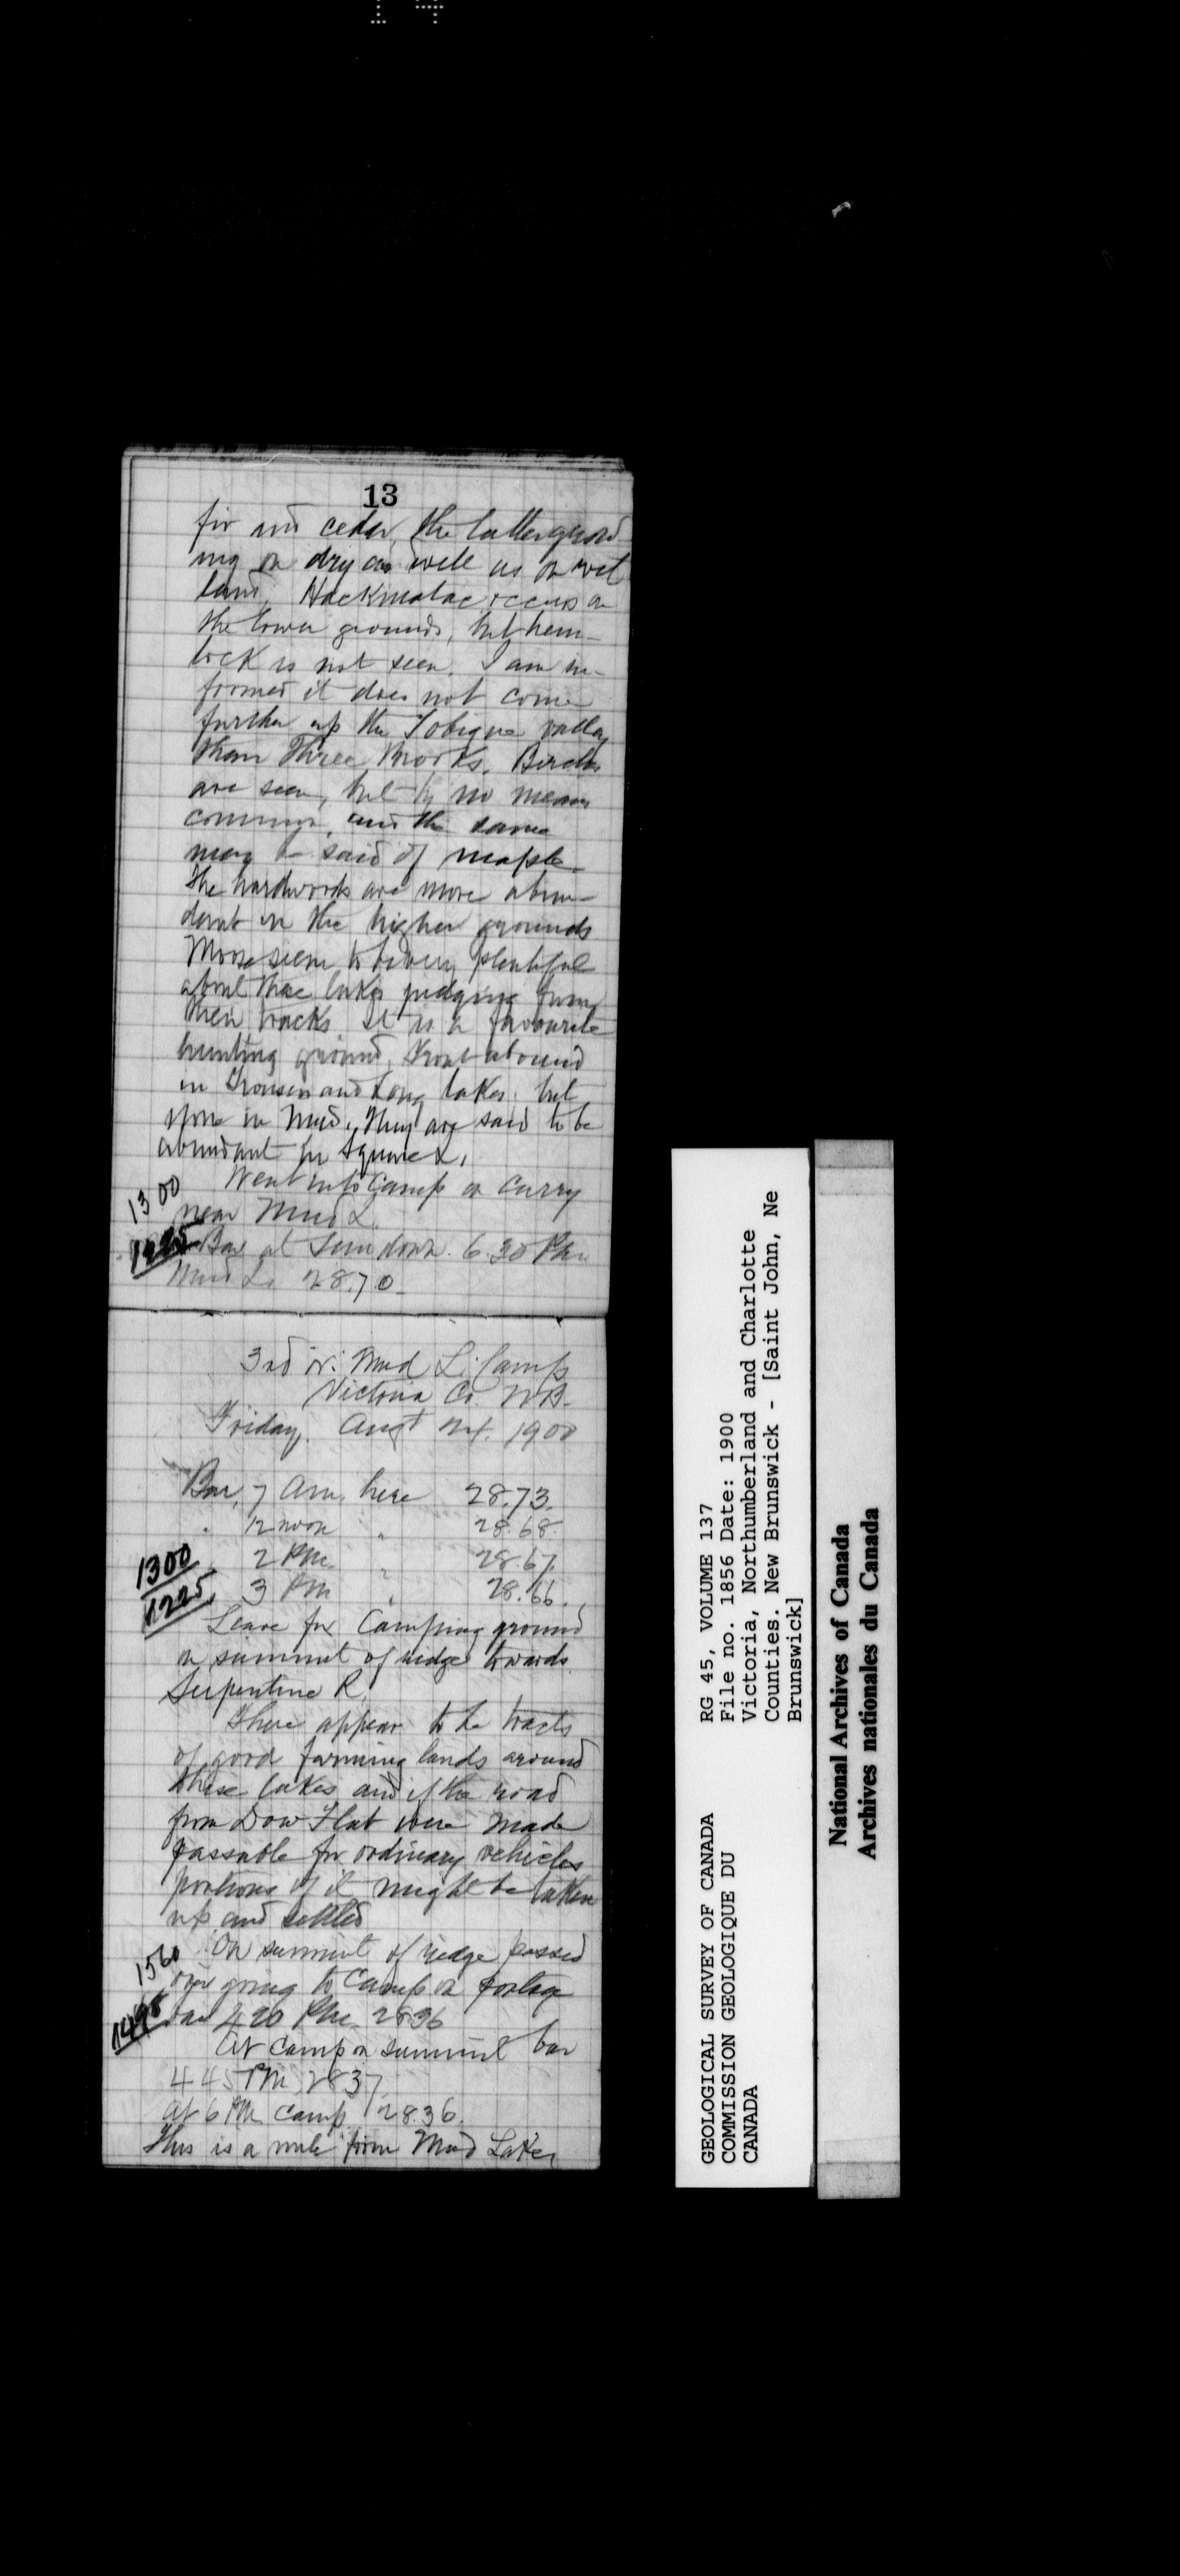 13
fir and cedar, the latter grow
ing on dry as well as on wet
land. Hackmatac occurs on
the lower grounds, but hem-
lock is not seen. I am in-
formed it does not come
further up the Tobique valley
than Three Brooks. Birches
are seen, but by no means
common, and the same
may be said of maple.
The hardwoods are more abun-
dant on the higher grounds
Moose seem to be very plentiful
about these lakes judging from
their tracks. It is a favourite
hunting ground. Trout abound
in Trousers and Long lakes but
none in Mud. They are said to be
abundant in Square L.
Went into Camp on carry
1300
near Mud L.
Bar at Sundown. 6.30 P.m.
Mud L. 28.70
3rd or Mud L. Camp
Victoria Co. N.B.
Friday. Augt 1900
Bar. 7 Am. here 28.73.
" 12 noon " 28.68.
" 2 P.m. " 28.67.
1300
" 3 P.m " 28.66.
1225
Leave for Camping ground
on summit of ridge towards
Serpentine R.
There appear to be tracts
of good farming lands around
these lakes and if the road
from Dow Flat were made
passable for ordinary vehicles
portions of it might be taken
up and settled
1560
On summit of ridge passed
over going to Camp on portage
bar 4 20 P.m. 28.36
1495
At Camp on summit bar
4 45 P.m. 28 37
at 6 P.m. camp 28.36.
This is a mile from Mud Lake.
RG 45, VOLUME 137
File no. 1856 Date: 1900
Victoria, Northumberland and Charlotte
Counties. New Brunswick - [Saint John, Ne
Brunswick]
GEOLOGICAL SURVEY OF CANADA
COMMISSION GEOLOGIQUE DU
CANADA
National Archives of Canada
Archives nationales du Canada